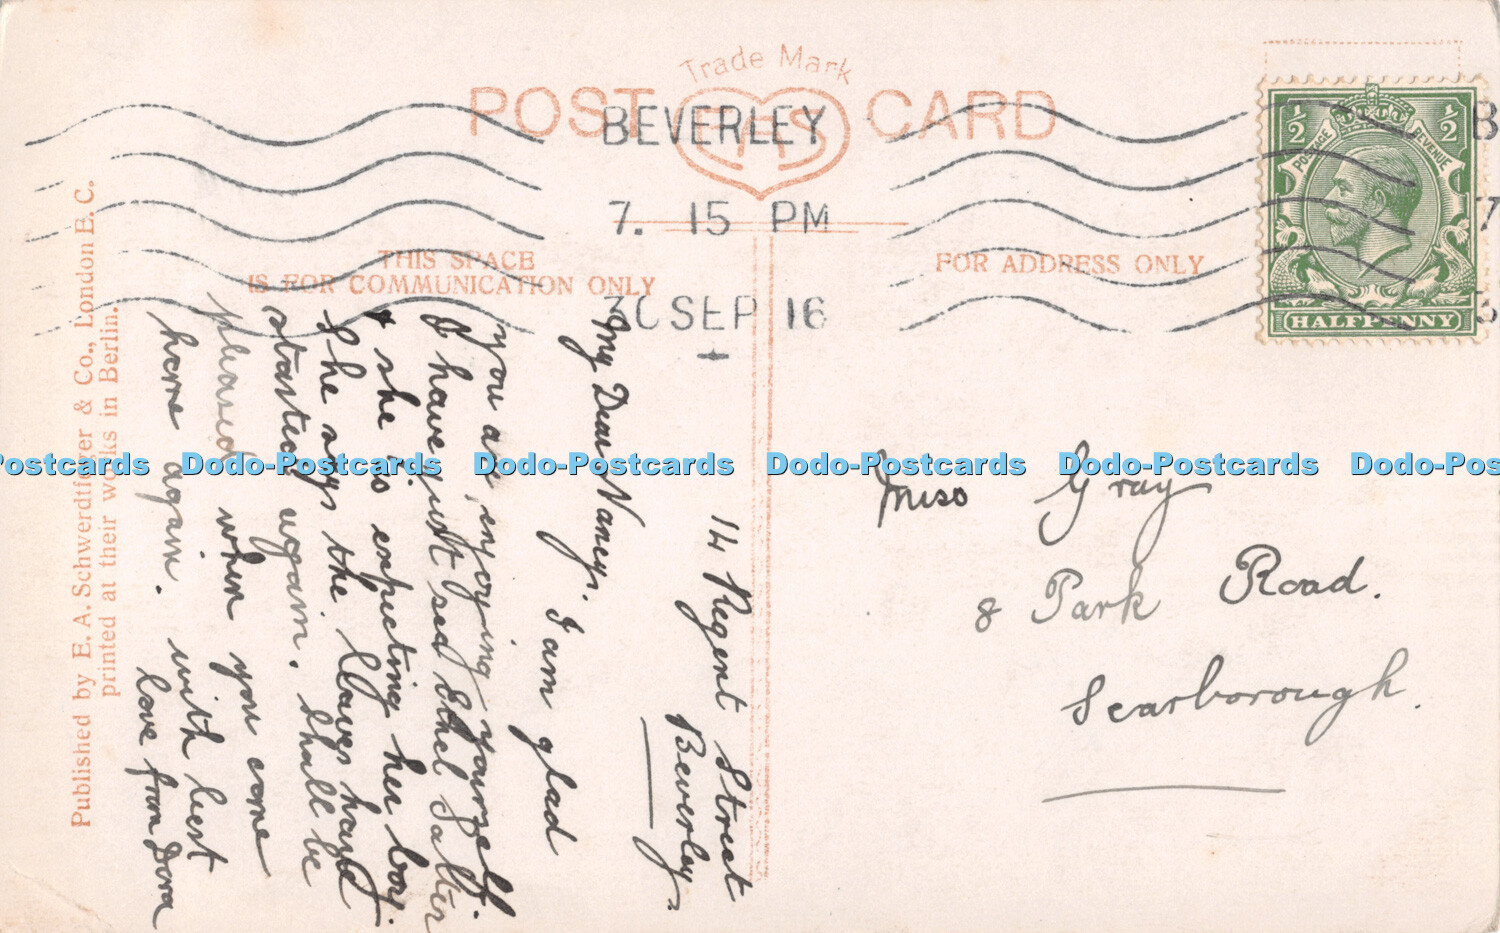 Trade Mark
POST CARD
EAS
BEVERLEY
7. 15 PM
30 SEP 16
THIS SPACE
IS FOR COMMUNICATION ONLY
FOR ADDRESS ONLY
POSTAGE REVENUE
1/2 1/2
HALFPENNY
B
7
3
Published by E. A. Schwerdtfeger & Co., London E. C.
printed at their works in Berlin.
14 Regent Street
Beverley,
My Dear Nancy.
I am glad
you are enjoying yourself.
I have just seen Ethel Salter
& she is expecting her boy.
She says the leaves have
started again. Shall be
pleased when you come
home again. with best
love from Dora
Miss Gray
8 Park Road.
Scarborough.
Postcards Dodo-Postcards Dodo-Postcards Dodo-Postcards Dodo-Postcards Dodo-Pos